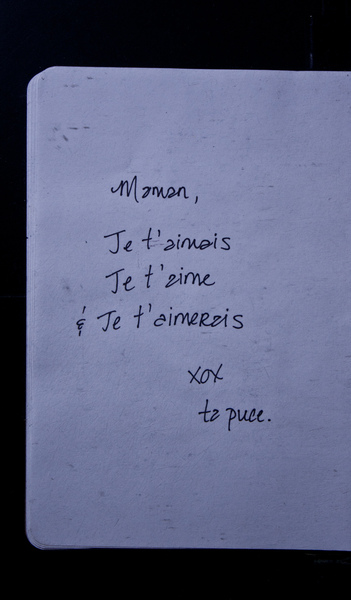 Maman,
Je t'aimais
Je t'aime
& Je t'aimerais
xox
ta puce.